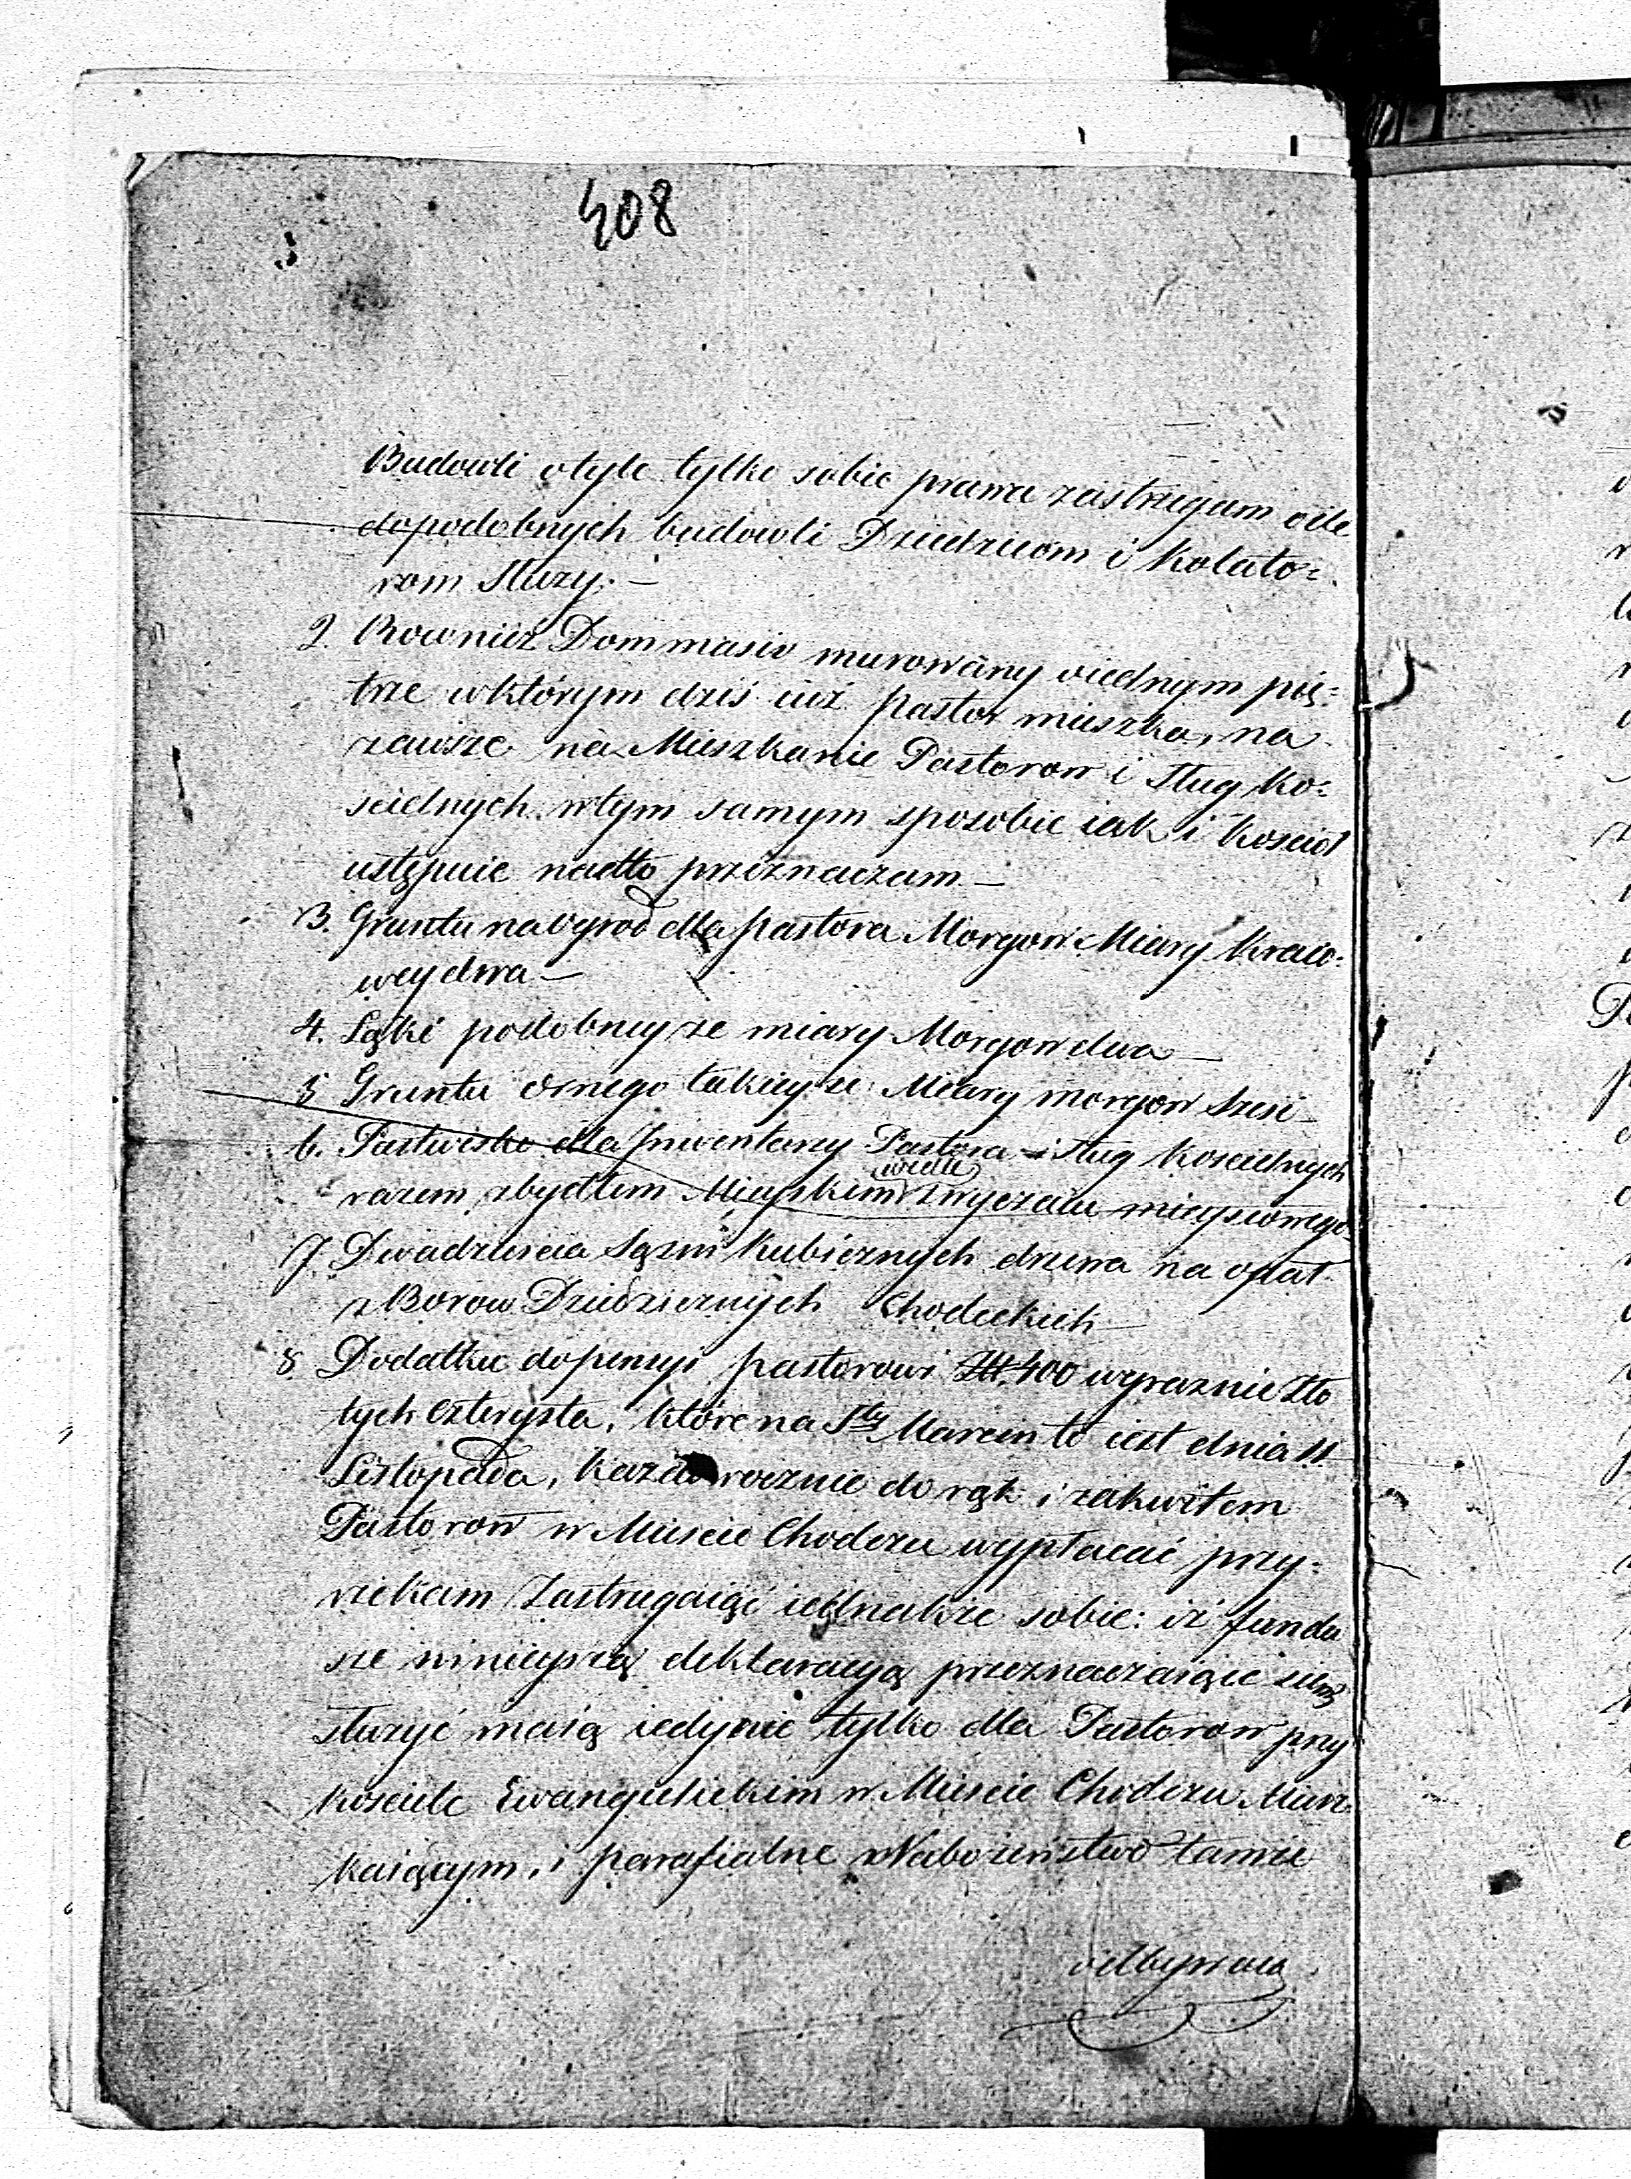 408
Budowli otyle tylko sobie prawa zastrzegam oile
dopodobnych budowli Dziedzicom i Kolato=
rom służy. —
2. Rownież Dom masiv murowany oiednym pię=
trze wktórym dziś iuż pastor mieszka, na
zawsze na Mieszkanie Pastorow i sług Ko=
scielnych wtym samym sposobie iak i Kosciol
ustępuie nadto przeznaczam —
3. Gruntu na Ogrod dla pastora Morgow Miary Kraio=
wey dwa —
4. Łąki podobney ze miary Morgow dwa —
5 Gruntu ornego takiey ze Miary morgow szesc —
6. Pastwisko dla Inwentarzy Pastora i sług Koscielnych
razem zbydłem Mieyskim wedle zwyczaiu mieyscowego
7. Dwadziescia sążni Kubicznych drzewa na opał
z Borow Dziedzicznych Chodeckich —
8 Dodatku dopensyi pastorowi Złt. 400 wyraznie Zło
tych czterysta, które na Sty Marcin to iest dnia 11
Listopada, każdorocznie do rąk i zakwitem
Pastorow w Miescie Chodczu wypłacać przy=
rzekam Zastrzegaiąc iednakże sobie: iż fundu
sze ninieyszą deklaracyą przeznaczaiące się
służyć maią iedynie tylko dla Pastorow przy
kosciele Ewangelickim w Miescie Chodczu Miesz
kaiącym, i parafialne Nabożeństwo tamże
odbywaią